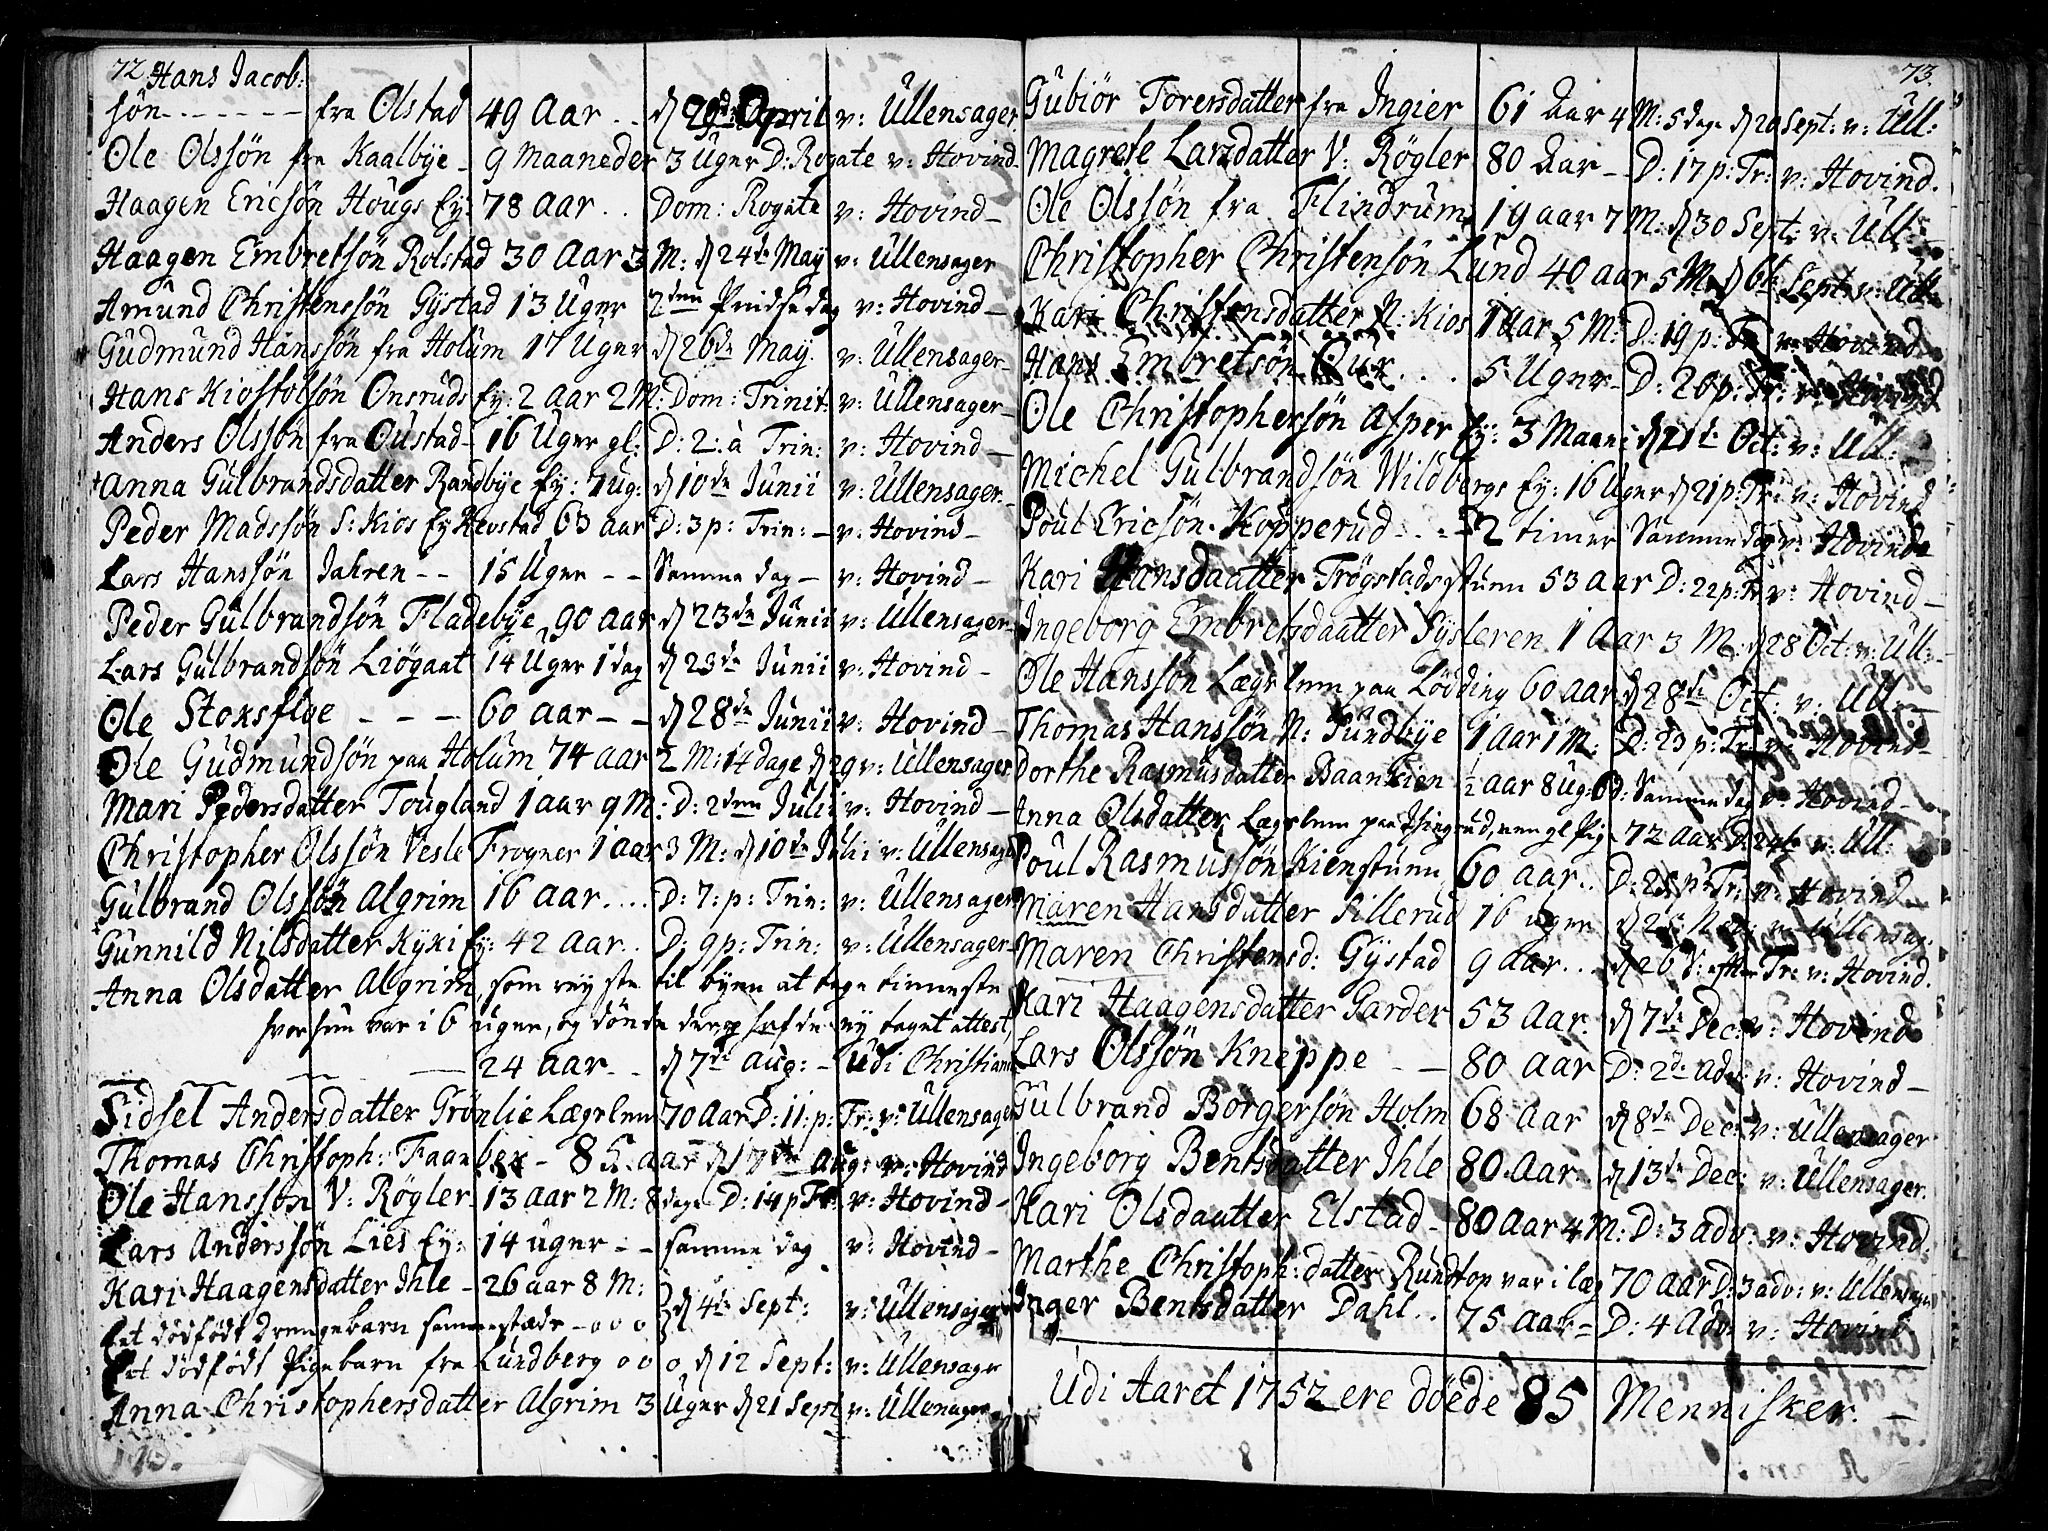 72 Hans Jacob:
søn - - - - - - fra Olstad 49 Aar . . d 29de April v: Ullensager.
Ole Olssøn fra Kaalbye - 9 Maaneder 3 Uger D: Rogate v: Hovind -
Haagen Ericsøn Hougs Ey: 78 aar . . Dom: Rogate v: Hovind -
Haagen Embretsøn Rolstad 30 Aar 3 M: d 24de May v: Ullensager
Amund Christenssøn Gystad 13 Uger 2den Pindsedag v: Hovind -
Gudmund Hanssøn fra Holum 17 Uger d 26de May. v: Ullensager -
Hans Kiostolsøn Onsruds Ey: 2 aar 2 M: Dom: Trinit: v: Ullensager -
Anders Olssøn fra Oustad - 16 Uger gl: D: 2: à Trin: v: Hovind -
Anna Gulbrandsdatter Randbye Ey: 7 ug: d 10de Junii v: Ullensager -
Peder Madssøn S: Kios Ey 63 aar D: 3 p: Trin: - v: Hovind -
Lars Hanssøn Jahren - - 15 Uger - - Samme dag - v: Hovind -
Peder Gulbrandsøn Fladebye, 90 aar d 23de Junii v: Ullensager -
Lars Gulbrandsøn Liøgaat 14 Uger 1 dag d 23de Junii v: Hovind -
Ole Stoksfloe - - - 60 aar - - d 28de Junii v: Hovind -
Ole Gudmundsøn paa Holum 74 aar 2 M: 14 dage d 29 v: Ullensager
Mari Pedersdatter Tougland 1 aar 9 M: D: 2den Julii v: Hovind -
Christopher Olssøn Vesle Frogner 1 aar 3 M: d 10de Julii v: Ullensager
Gulbrand Olssøn Algrim 16 aar . . . . D: 7: p: Trin: v: Ullensager
Gunnild Nilsdatter Kyki Ey: 42 Aar . . D: 9 p: Trin: v: Ullensager -
Anna Olsdatter Algrim, som reyste til byen at tage tienneste
hvor hun var i 6 uger, og døde der hafde ey taget attest,
24 aar - - d 7de Aug: - Udi Christiania
Sidsel Andersdatter Grønlie Lægslem 70 Aar D: 11: p: Tr: v: Ullensager
Thomas Christoph: Faanbek - 85 aar d 17de Aug: v: Hovind
Ole Hanssøn V: Røgler - 13 aar 2 M: 8 dage D: 14 p Tr: v: Hovind -
Lars Anderssøn Lies Ey: 14 uger - - samme dag v: Hovind -
Kari Haagensdatter Ihle - 26 aar 8 M: d 4de Sept: v: Ullensager
Et dødfødt Drengebarn sammestæds - o o o
Et dødfødt Pigebarn fra Lundberg o o o d 12 Sept: v: Ullensager
Anna Christophersdatter Algrim 3 Uger d 21 Sept v: Ullensager
73.
Gubiør Toresdatter fra Ingier 61 Aar 4 M: 5 dage d 20 Sept: v: Ull:
Magrete Larsdatter V: Røgler 80 Aar - D: 17 p: Tr: v: Hovind.
Ole Olssøn fra Flindrum 19 aar 7 M: d 30 Sept: v: Ull:
Christopher Christensøn Lund 40 aar 5 M: d Sept: v: Ull:
Kari Christensdatter N: Kios 1 aar 5 M: D: 19 p: Tr v: Hovind -
Hans Embretsøn . . . 5 Uger - D: 20 p: Tr: v: Hovind
Ole Christophersøn Asper Ey: 3 Maan: d 21de Oct: v: Ull:
Michel Gulbrandsøn Wildbergs Ey: 16 Uger d 21 p: Tr: v: Hovind
Poul Ericsøn Kopperud - . - 2 timer Samme dag v: Hovind
Kari Hansdaatter Trøgstadsstuen 53 aar D: 22 p: Tr v: Hovind -
Ingeborg Embretsdaatter Sysleren 1 Aar 3 M: d 28 Oct: v: Ull: -
Ole Hanssøn Lægslem paa Lødding 60 aar d 28de Oct: v: Ull.
Thomas Hanssøn N: Sundbye 1 aar 1 M: D: 23 p: Tr: v: Hovind -
Dorthe Rasmusdatter Baankien ½ aar 8 ug: D: Samme dag v: Hovind -
Anna Olsdatter Lægslem paa, en gl Pig 72 aar D: 24de v: Ull:
Poul Rasmussøn Kienstuen 60 aar . . D: 25 p: Tr: v: Hovind
Maren Hansdatter Sillerud 16 uger d 26 v: Ullensag:
Maren Christensd: Gystad 9 aar . . d 26 efter Tr: v: Hovind.
Kari Haagensdatter Garder 53 Aar. d 7de Dec: v: Hovind
Lars Olssøn Kneppe - - 80 aar D: 2de adv: v: Hovind -
Gulbrand Børgersøn Holm 68 aar d 8de Dec: v: Ullensager
Ingeborg Bentsdatter Ihle 80 Aar - d 13de Dec: v: Ullensager.
Kari Olsdaatter Elstad - 80 Aar 4 M: D: 3 adv: v: Hovind.
Marthe Christoph: datter Rundtop var i læg 70 aar D: 3 adv: v: Ullensager
Inger Bentsdatter Dahl . . 75 aar - D: 4 Adv: v: Hovind
Udi Aaret 1752 ere døede 85 Mennisker. -